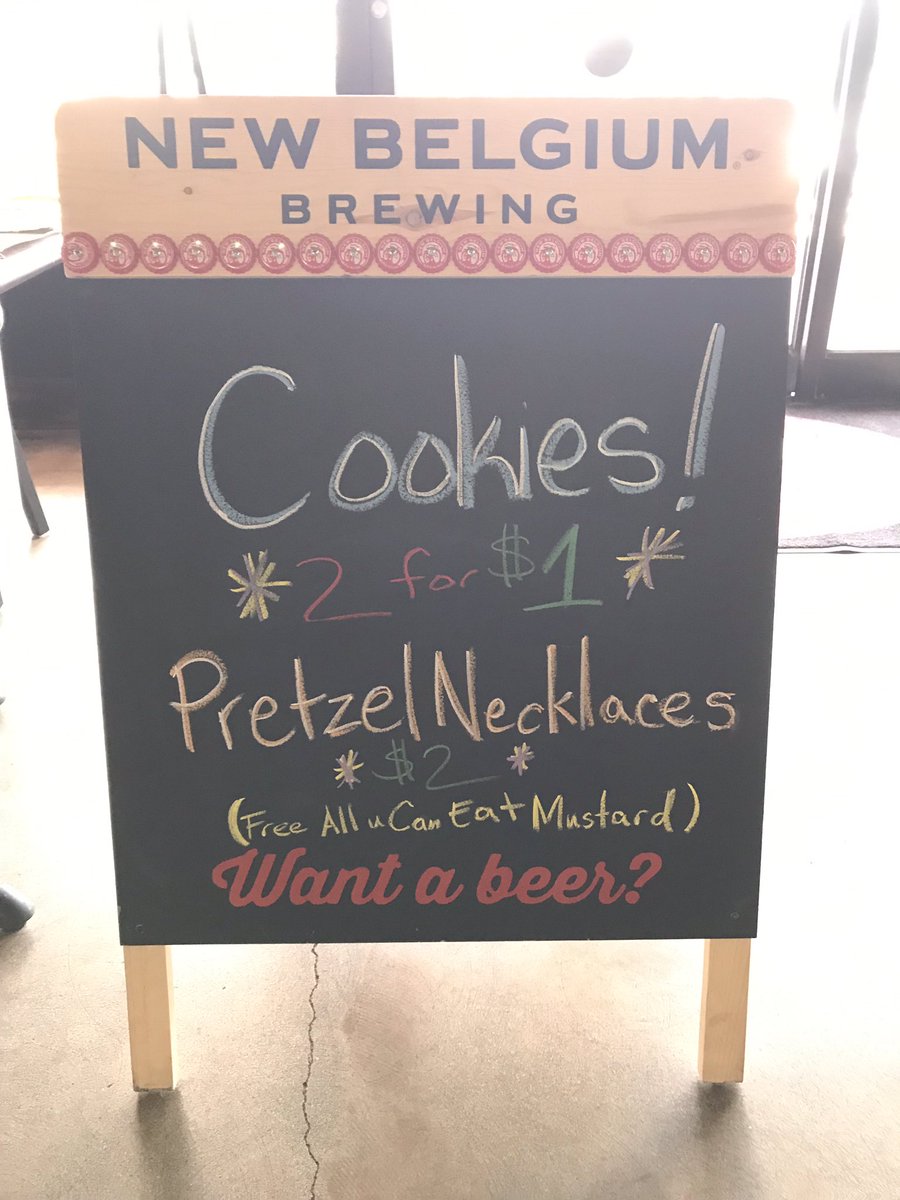 NEW BELGIUM
BREWING
Cookies!
* 2 for $1 *
Pretzel Necklaces
* $2 *
(Free All u Can Eat Mustard)
Want a beer?